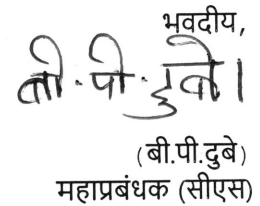 भवदीय,
बी.पी.दुबे।
(बी.पी.दुबे)
महाप्रबंधक (सीएस)